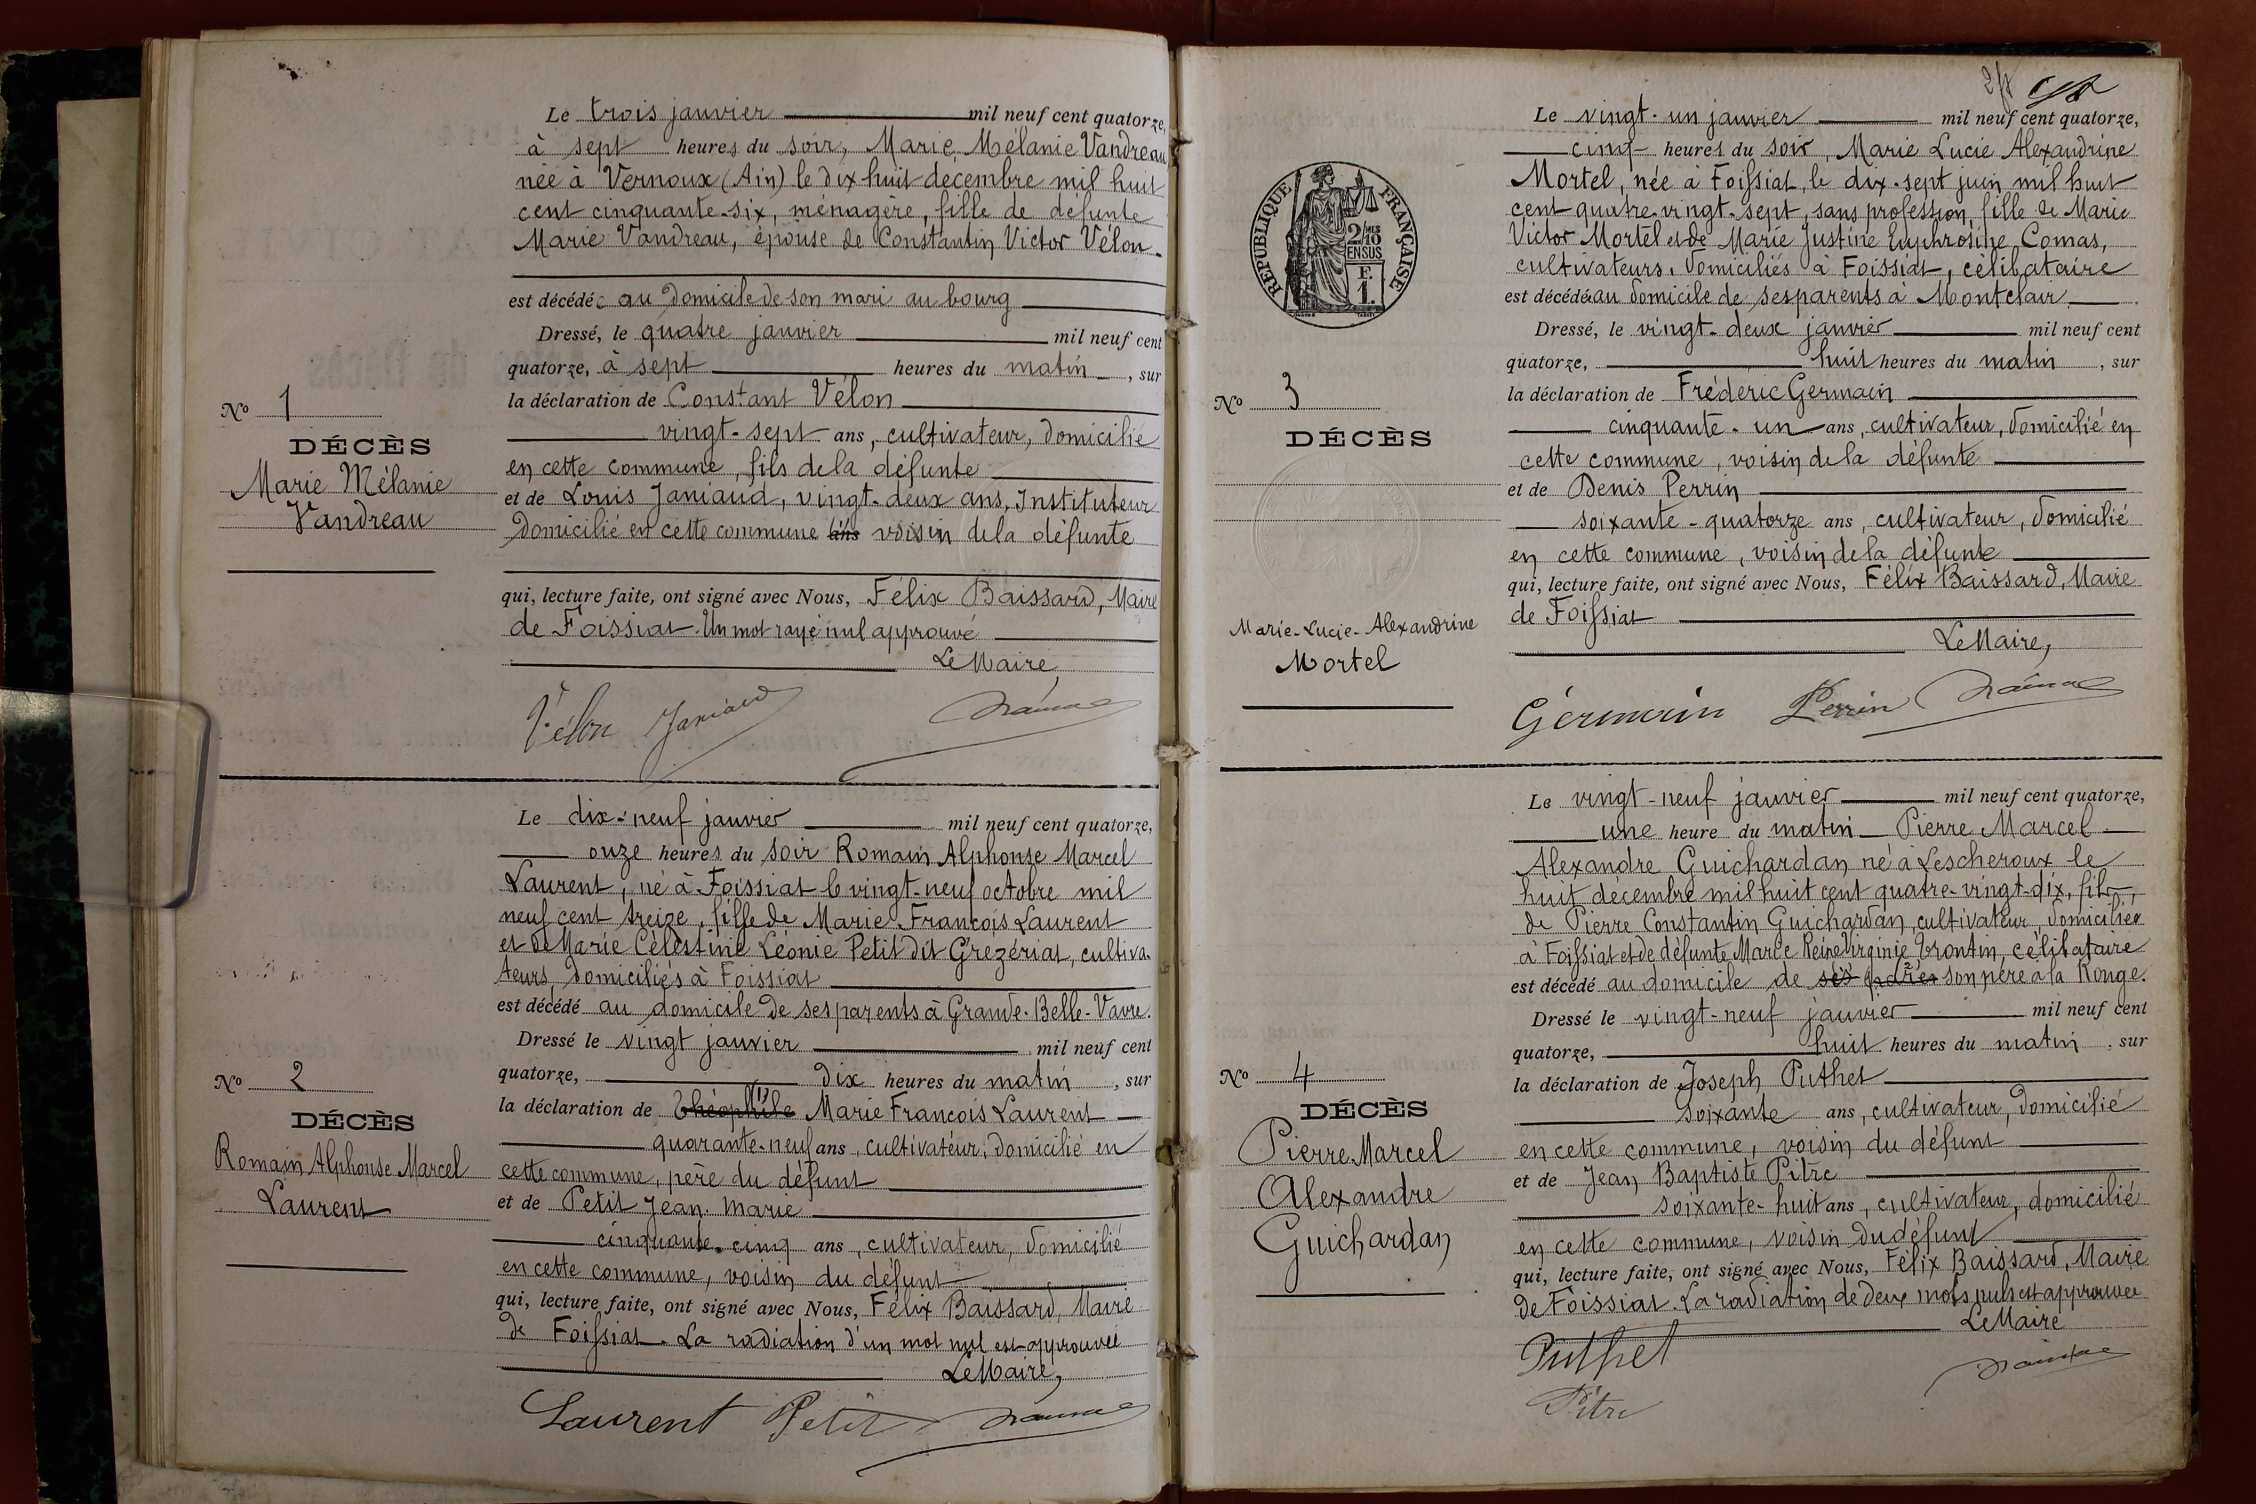 Le trois janvier mil neuf cent quatorze,
à sept heures du soir, Marie Mélanie Vandreau
née à Vernoux (Ain) le dix huit décembre mil huit
cent cinquante-six, ménagère, fille de défunte
Marie Vandreau, épouse de Constantin Victor Vélon
est décédée au domicile de son mari au bourg
Dressé, le quatre janvier mil neuf cent
quatorze, à sept heures du matin, sur
la déclaration de Constant Vélon
vingt-sept ans, cultivateur, domicilié
en cette commune, fils de la défunte
et de Louis Janiaud, vingt-deux ans, Instituteur
domicilié en cette commune voisin de la défunte
qui, lecture faite, ont signé avec Nous, Félix Baissard, Maire
de Foissiat. Un mot rayé nul approuvé
Le Maire,
Vélon Janiaud
No 1
DÉCÈS
Marie Mélanie
Vandreau
Le dix-neuf janvier mil neuf cent quatorze,
onze heures du soir Romain Alphonse Marcel
Laurent, né à Foissiat le vingt-neuf octobre mil
neuf cent treize, fille de Marie François Laurent
et de Marie Célestine Léonie Petit dit Grezériat, cultiva-
teurs, domiciliés à Foissiat
est décédé au domicile de ses parents à Grande-Belle-Vavre.
Dressé le vingt janvier mil neuf cent
quatorze, dix heures du matin, sur
la déclaration de Théophile Marie François Laurent
quarante-neuf ans, cultivateur, domicilié en
cette commune, père du défunt
et de Petit Jean-Marie
cinquante-cinq ans, cultivateur, domicilié
en cette commune, voisin du défunt
qui, lecture faite, ont signé avec Nous, Félix Baissard, Maire
de Foissiat. La radiation d'un mot nul est approuvée
Le Maire,
Laurent Petit
No 2
DÉCÈS
Romain Alphonse Marcel
Laurent
Le vingt-un janvier mil neuf cent quatorze,
cinq heures du soir, Marie Lucie Alexandrine
Mortel, née à Foissiat, le dix-sept juin mil huit
cent quatre-vingt-sept, sans profession, fille de Marie
Victor Mortel et de Marie Justine Euphrosine Comas,
cultivateurs, domiciliés à Foissiat, célibataire
est décédée au domicile de ses parents à Montclair
Dressé, le vingt-deux janvier mil neuf cent
quatorze, huit heures du matin, sur
la déclaration de Frédéric Germain
cinquante-un ans, cultivateur, domicilié en
cette commune, voisin de la défunte
et de Denis Perrin
soixante-quatorze ans, cultivateur, domicilié
en cette commune, voisin de la défunte
qui, lecture faite, ont signé avec Nous, Félix Baissard, Maire
de Foissiat
Le Maire,
Germain Perrin
RÉPUBLIQUE FRANÇAISE
2/10 EN SUS
F.
1.
No 3
DÉCÈS
Marie-Lucie-Alexandrine
Mortel
Le vingt-neuf janvier mil neuf cent quatorze,
une heure du matin Pierre Marcel
Alexandre Guichardan né à Lescheroux le
huit décembre mil huit cent quatre-vingt-dix, fils
de Pierre Constantin Guichardan, cultivateur, domicilié
à Foissiat et de défunte Marie Reine Virginie célibataire
est décédé au domicile de ses son père à la Ronge.
Dressé le vingt-neuf janvier mil neuf cent
quatorze, huit heures du matin, sur
la déclaration de Joseph Puthet
soixante ans, cultivateur, domicilié
en cette commune, voisin du défunt
et de Jean Baptiste Pitre
soixante-huit ans, cultivateur, domicilié
en cette commune, voisin du défunt
qui, lecture faite, ont signé avec Nous, Félix Baissard, Maire
de Foissiat. La radiation de deux mots nuls est approuvée
Le Maire
Puthet
Pitre
No 4
DÉCÈS
Pierre Marcel
Alexandre
Guichardan